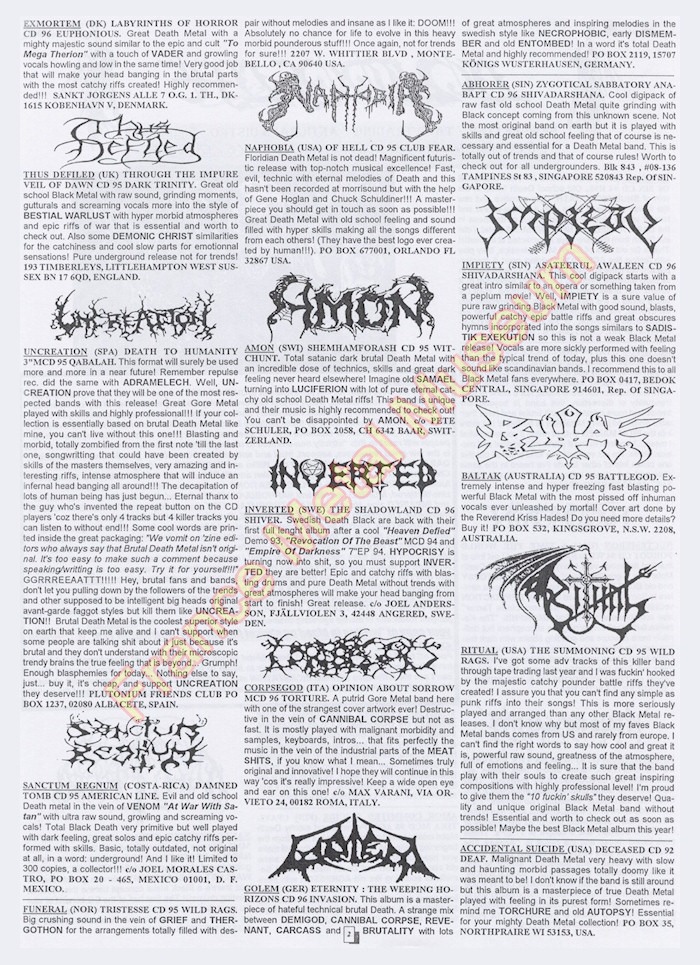 EXMORTEM (DK) LABYRINTHS OF HORROR
CD 96 EUPHONIOUS. Great Death Metal with a
mighty majestic sound similar to the epic and cult "To
Mega Therion" with a touch of VADER and growling
vocals howling and low in the same time! Very good job
that will make your head banging in the brutal parts
with the most catchy riffs created! Highly recommen-
ded!!! SANKT JORGENS ALLE 7 O.G. 1. TH., DK-
1615 KOBENHAVN V, DENMARK.
Thus
Defiled
THUS DEFILED (UK) THROUGH THE IMPURE
VEIL OF DAWN CD 95 DARK TRINITY. Great old
school Black Metal with raw sound, grinding moments,
gutturals & screaming vocals more into the style of
BESTIAL WARLUST with hyper morbid atmospheres
and epic riffs of war that is essential and worth to
check out. Also some DEMONIC CHRIST similarities
for the catchiness and cool slow parts for emotionnal
sensations! Pure underground release not for trends!
193 TIMBERLEYS, LITTLEHAMPTON WEST SUS-
SEX BN 17 6QD, ENGLAND.
UNCREATION
UNCREATION (SPA) DEATH TO HUMANITY
3"MCD 95 QABALAH. This format will surely be used
more and more in a near future! Remember repulse
rec. did the same with ADRAMELECH. Well, UN-
CREATION prove that they will be one of the most res-
pected bands with this release! Great Gore Metal
played with skills and highly professional!!! If your col-
lection is essentially based on brutal Death Metal like
mine, you can't live without this one!!! Blasting and
morbid, totally zombified from the first note 'till the last
one, songwritting that could have been created by
skills of the masters themselves, very amazing and in-
teresting riffs, intense atmosphere that will induce an
infernal head banging all around!!! The decapitation of
lots of human being has just begun... Eternal thanx to
the guy who's invented the repeat button on the CD
players 'coz there's only 4 tracks but 4 killer tracks you
can listen to without end!!! Some cool words are prin-
ted inside the great packaging: "We vomit on 'zine edi-
tors who always say that Brutal Death Metal isn't origi-
nal. It's too easy to make such a comment because
speaking/writting is too easy. Try it for yourself!!!"
GGRRREEAATTT!!!!! Hey, brutal fans and bands,
don't let you pulling down by the followers of the trends
and other supposed to be intelligent big heads original
avant-garde faggot styles but kill them like UNCREA-
TION!! Brutal Death Metal is the coolest superior style
on earth that keep me alive and I can't support when
some people are talking shit about it just because it's
brutal and they don't understand with their microscopic
trendy brains the true feeling it's beyond... Grumph!
Enough blasphemies for today.. Nothing else to say,
just... buy it, it's cheap and support UNCREATION
they deserve!!! PLUTONIUM FRIENDS CLUB PO
BOX 1237, 02080 ALBACETE, SPAIN.
SANCTUM
REGNUM
SANCTUM REGNUM (COSTA-RICA) DAMNED
TOMB CD 95 AMERICAN LINE. Evil and old school
Death metal in the vein of VENOM "At War With Sa-
tan" with ultra raw sound, growling and screaming vo-
cals! Total Black Death very primitive but well played
with dark feeling, great solos and epic catchy riffs per-
formed with skills. Basic, totally outdated, not original
at all, in a word: underground! And I like it! Limited to
300 copies, a collector!!! c/o JOEL MORALES CAS-
TRO, PO BOX 20 - 465, MEXICO 01001, D. F.
MEXICO.
FUNERAL (NOR) TRISTESSE CD 95 WILD RAGS.
Big crushing sound in the vein of GRIEF and THER-
GOTHON for the arrangements totally filled with des-
pair without melodies and insane as I like it: DOOM!!!
Absolutely no chance for life to evolve in this heavy
morbid pounderous stuff!!! Once again, not for trends
for sure!!! 2207 W. WHITTIER BLVD , MONTE-
BELLO , CA 90640 USA.
NAPHOBIA
NAPHOBIA (USA) OF HELL CD 95 CLUB FEAR.
Floridian Death Metal is not dead! Magnificent futuris-
tic release with top-notch musical excellence! Fast,
evil, technic with eternal melodies of Death and this
hasn't been recorded at morrisound but with the help
of Gene Hoglan and Chuck Schuldiner!!! A master-
piece you should get in touch as soon as possible!!!
Great Death Metal with old school feeling and sound
filled with hyper skills making all the songs different
from each others! (They have the best logo ever crea-
ted by human!!!). PO BOX 677001, ORLANDO FL
32867 USA.
AMON
AMON (SWI) SHEMHAMFORASH CD 95 WIT-
CHUNT. Total satanic dark brutal Death Metal with
an incredible dose of technics, skills and great dark
feeling never heard elsewhere! Imagine old SAMAEL
turning into LUCIFERION with lot of pure eternal cat-
chy old school Death Metal riffs! This band is unique
and their music is highly recommended to check out!
You can't be disappointed by AMON. c/o PETE
SCHULER, PO BOX 2058, CH 6342 BAAR, SWIT-
ZERLAND.
INVERTED
INVERTED (SWE) THE SHADOWLAND CD 96
SHIVER. Swedish Death Black are back with their
first full lenght album after a cool "Heaven Defied"
Demo 93, "Revocation Of The Beast" MCD 94 and
"Empire Of Darkness" 7"EP 94. HYPOCRISY is
turning now into shit, so you must support INVER-
TED they are better! Epic and catchy riffs with blas-
ting drums and pure Death Metal without trends with
great atmospheres will make your head banging from
start to finish! Great release. c/o JOEL ANDERS-
SON, FJÄLLVIOLEN 3, 42448 ANGERED, SWE-
DEN.
CORPSEGOD
CORPSEGOD (ITA) OPINION ABOUT SORROW
MCD 96 TORTURE. A putrid Gore Metal band here
with one of the strangest cover artwork ever! Destruc-
tive in the vein of CANNIBAL CORPSE but not as
fast. It is mostly played with malignant morbidity and
samples, keyboards, intros... that fits perfectly the
music in the vein of the industrial parts of the MEAT
SHITS, if you know what I mean... Sometimes truly
original and innovative! I hope they will continue in this
way 'cos it's really impressive! Keep a wide open eye
and ear on this one! c/o MAX VARANI, VIA OR-
VIETO 24, 00182 ROMA, ITALY.
GOLEM
GOLEM (GER) ETERNITY : THE WEEPING HO-
RIZONS CD 96 INVASION. This album is a master-
piece of hateful technical brutal Death. A strange mix
between DEMIGOD, CANNIBAL CORPSE, REVE-
NANT, CARCASS and BRUTALITY with lots
2
of great atmospheres and inspiring melodies in the
swedish style like NECROPHOBIC, early DISMEM-
BER and old ENTOMBED! In a word it's total Death
Metal and highly recommended! PO BOX 2119, 15707
KÖNIGS WUSTERHAUSEN, GERMANY.
ABHORER (SIN) ZYGOTICAL SABBATORY ANA-
BAPT CD 96 SHIVADARSHANA. Cool digipack of
raw fast old school Death Metal quite grinding with
Black concept coming from this unknown scene. Not
the most original band on earth but it is played with
skills and great old school feeling that of course is ne-
cessary and essential for a Death Metal band. This is
totally out of trends and that of course rules! Worth to
check out for all undergrounders. Blk 843 , #08-136
TAMPINES St 83 , SINGAPORE 520843 Rep. Of SIN-
GAPORE.
IMPIETY
IMPIETY (SIN) ASATEERUL AWALEEN CD 96
SHIVADARSHANA. This cool digipack starts with a
great intro similar to an opera or something taken from
a peplum movie! Well, IMPIETY is a sure value of
pure raw grinding Black Metal with good sound, blasts,
powerful catchy epic battle riffs and great obscures
hymns integrated into the songs similars to SADIS-
TIK EXEKUTION so this is not a weak Black Metal
release! Vocals are more sickly performed with feeling
than the typical trend of today, plus this one doesn't
sound like scandinavian bands. I recommend this to all
Black Metal fans everywhere. PO BOX 0417, BEDOK
CENTRAL, SINGAPORE 914601, Rep. Of SINGA-
PORE.
BALTAK
BALTAK (AUSTRALIA) CD 95 BATTLEGOD. Ex-
tremely intense and hyper freezing fast blasting po-
werful Black Metal with the most pissed off inhuman
vocals ever unleashed by mortal! Cover art done by
the Reverend Kriss Hades! Do you need more details?
Buy it! PO BOX 532, KINGSGROVE, N.S.W. 2208,
AUSTRALIA.
RITUAL
RITUAL (USA) THE SUMMONING CD 95 WILD
RAGS. I've got some adv tracks of this killer band
through tape trading last year and I was fuckin' hooked
by the majestic catchy pounder battle riffs they've
created! I assure you that you can't find any simple as
punk riffs into their songs! This is more seriously
played and arranged than any other Black Metal re-
leases. I don't know why but most of my faves Black
Metal bands comes from US and rarely from europe. I
can't find the right words to say how cool and great it
is, powerful raw sound, greatness of the atmosphere,
full of emotions and feeling... It is sure that the band
play with their souls to create such great inspiring
compositions with highly professional level! I'm proud
to give them the "10 fuckin' skulls" they deserve! Qua-
lity and unique original Black Metal band without
trends! Essential and worth to check out as soon as
possible! Maybe the best Black Metal album this year!
ACCIDENTAL SUICIDE (USA) DECEASED CD 92
DEAF. Malignant Death Metal very heavy with slow
and haunting morbid passages totally doomy like it
was meant to be! I don't know if the band is still around
but this album is a masterpiece of true Death Metal
played with feeling in its purest form! Sometimes re-
mind me TORCHURE and old AUTOPSY! Essential
for your mighty Death Metal collection! PO BOX 35,
NORTHPRAIRE WI 53153, USA.
France Metal Museum